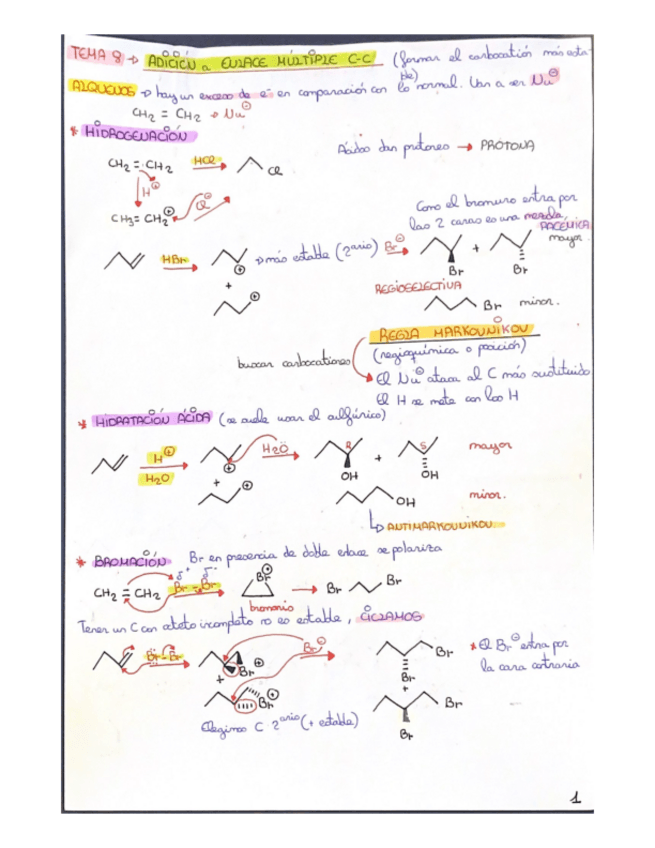 TEMA 8 → ADICIÓN a ENLACE MÚLTIPLE C-C (formar el carbocatión más esta-
ble)
ALQUENOS → hay un exceso de e⁻ en comparación con lo normal. Van a ser Nu⊖
CH₂ = CH₂ → Nu⊖
* HIDROGENACIÓN
Ácidos dan protones → PROTONA
CH₂ = CH₂ HCl Cl
H⊕
CH₃ = CH₂⊕ Cl⊖
Como el bromuro entra por
las 2 caras es una mezcla
RACÉMICA
HBr ⊕ → más estable (2ario) Br⊖ Br + Br mayor.
+
⊕
REGIOSELECTIVA
Br minor.
REGLA MARKOUNIKOU
(regioquímica o posición)
buscar carbocationes
El Nu⊖ ataca al C más sustituido
El H se mete con los H
* HIDRATACIÓN ÁCIDA (se suele usar el sulfúrico)
H⊕ H₂O ⊕ H₂O R OH + S OH mayor
+
⊕
OH minor.
↳ ANTIMARKOUNIKOU
* BROMACIÓN Br en presencia de doble enlace se polariza
δ⁺ δ⁻
CH₂ = CH₂ Br - Br Br⊕ → Br Br
bromonio
Tener un C con octeto incompleto no es estable, CICLAMOS
Br-Br Br⊕ Br⊖ Br Br
+
Br⊕ Br Br
* El Br⊖ entra por
la cara contraria
Elegimos C 2ario (+ estable)
1